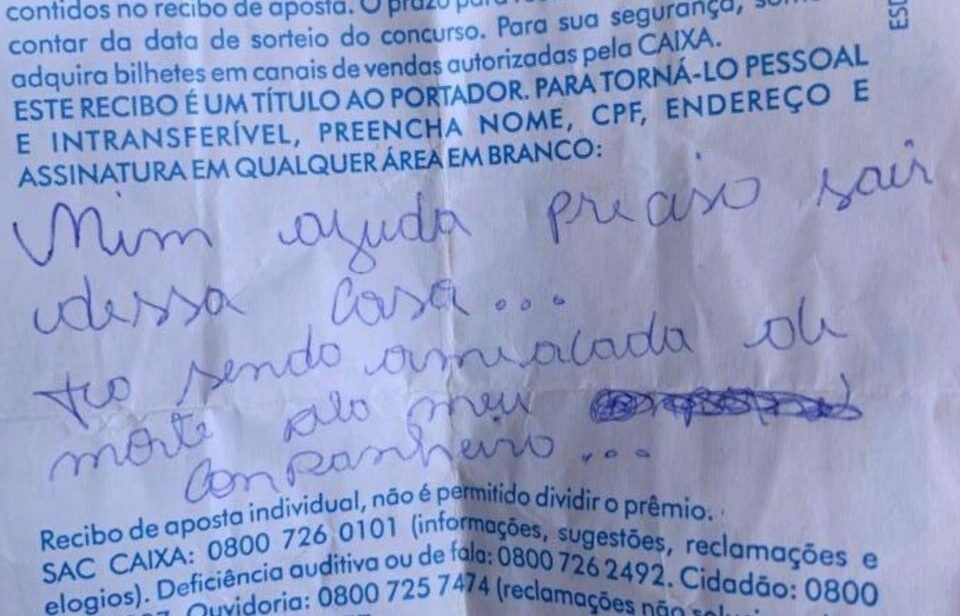 contidos no recibo de aposta. O prazo para
contar da data de sorteio do concurso. Para sua segurança,
adquira bilhetes em canais de vendas autorizadas pela CAIXA.
ESTE RECIBO É UM TÍTULO AO PORTADOR. PARA TORNÁ-LO PESSOAL
E INTRANSFERÍVEL, PREENCHA NOME, CPF, ENDEREÇO E
ASSINATURA EM QUALQUER ÁREA EM BRANCO:
Mim ajuda preciso sair
dessa casa...
to sendo amiacada de
morte pelo meu
companheiro...
Recibo de aposta individual, não é permitido dividir o prêmio.
SAC CAIXA: 0800 726 0101 (informações, sugestões, reclamações e
elogios). Deficiência auditiva ou de fala: 0800 726 2492. Cidadão: 0800
Ouvidoria: 0800 725 7474 (reclamações não